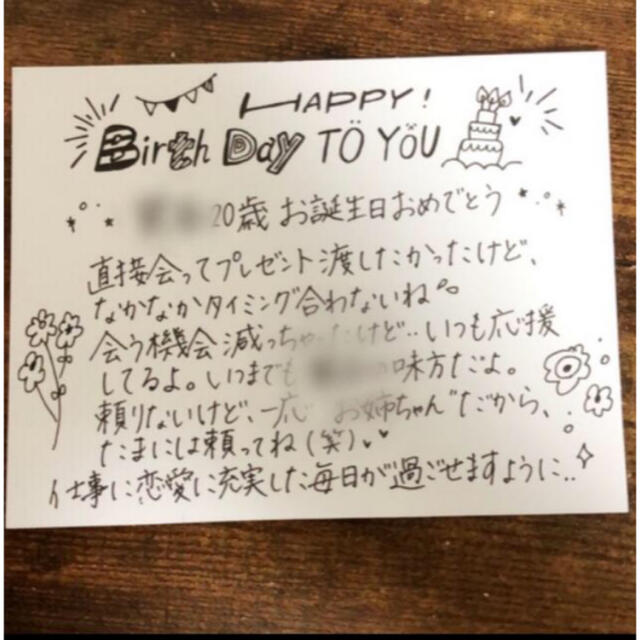 HAPPY!
Birth Day TO YOU
20歳 お誕生日おめでとう
直接会ってプレゼント渡したかったけど、
なかなかタイミング合わないね
会う機会減っちゃったけど‥いつも応援
してるよ。いつまでも の味方だよ。
頼りないけど、一応"お姉ちゃん"だから、
たまには頼ってね(笑)
仕事に恋愛に充実した毎日が過ごせますように‥